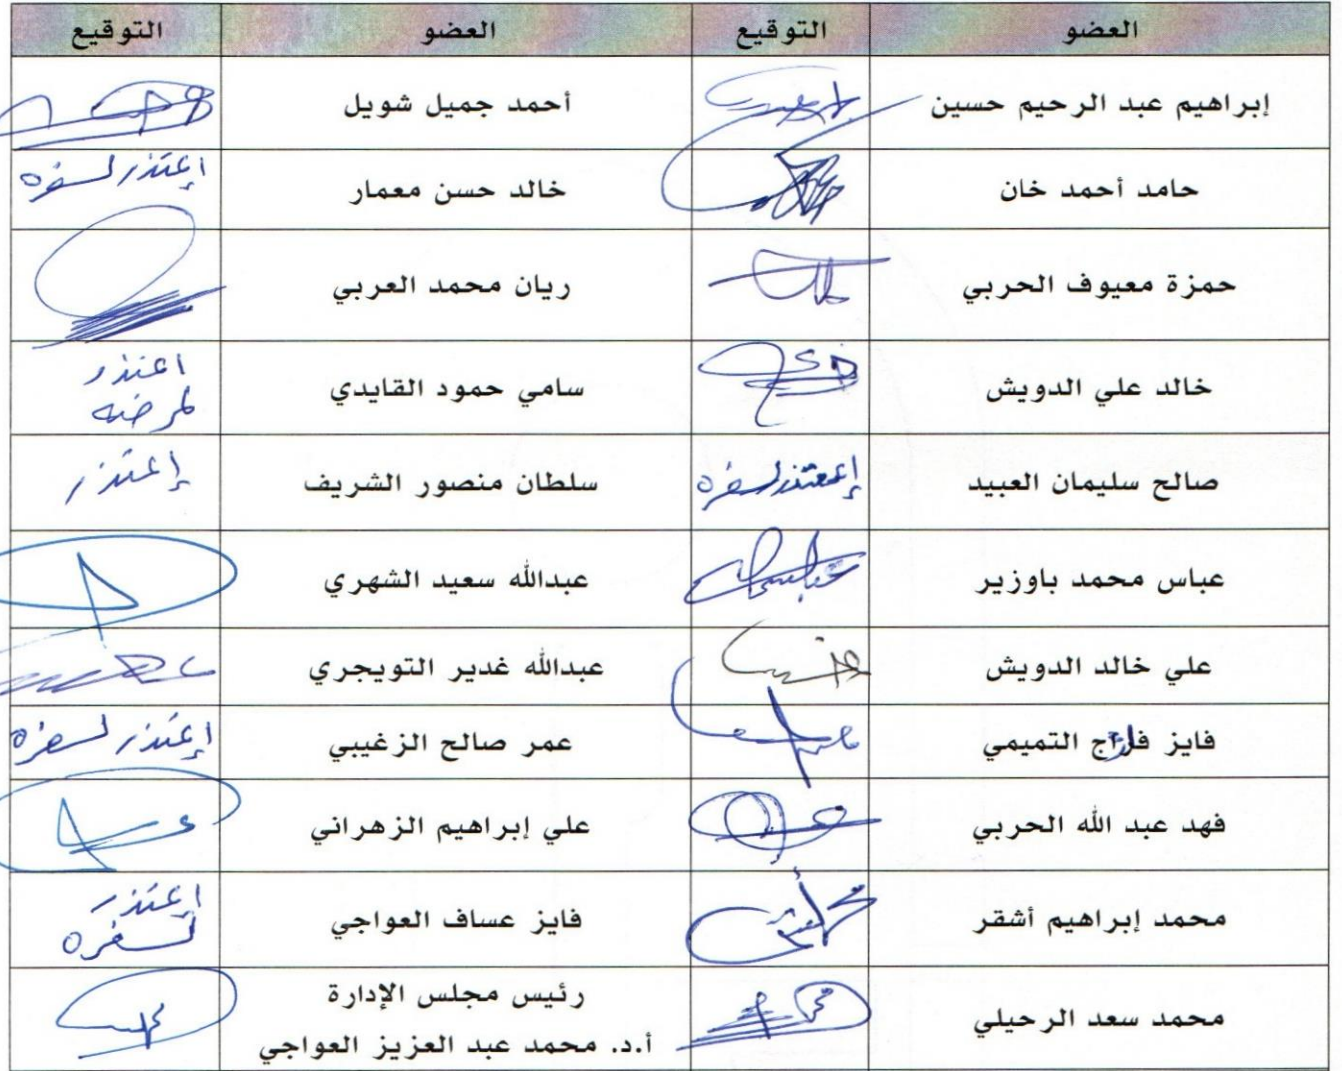 العضو التوقيع العضو التوقيع
إبراهيم عبد الرحيم حسين أحمد جميل شويل
حامد أحمد خان خالد حسن معمار إعتذر لسفره
حمزة معيوف الحربي ريان محمد العربي
خالد علي الدويش سامي حمود القايدي اعتذر
لمرضه
صالح سليمان العبيد إعتذر لسفره سلطان منصور الشريف إعتذر
عباس محمد باوزير عبدالله سعيد الشهري
علي خالد الدويش عبدالله غدير التويجري
فايز التميمي عمر صالح الزغيبي إعتذر لسفره
فهد عبد الله الحربي علي إبراهيم الزهراني
محمد إبراهيم أشقر فايز عساف العواجي إعتذر
لسفره
محمد سعد الرحيلي رئيس مجلس الإدارة
أ.د. محمد عبد العزيز العواجي